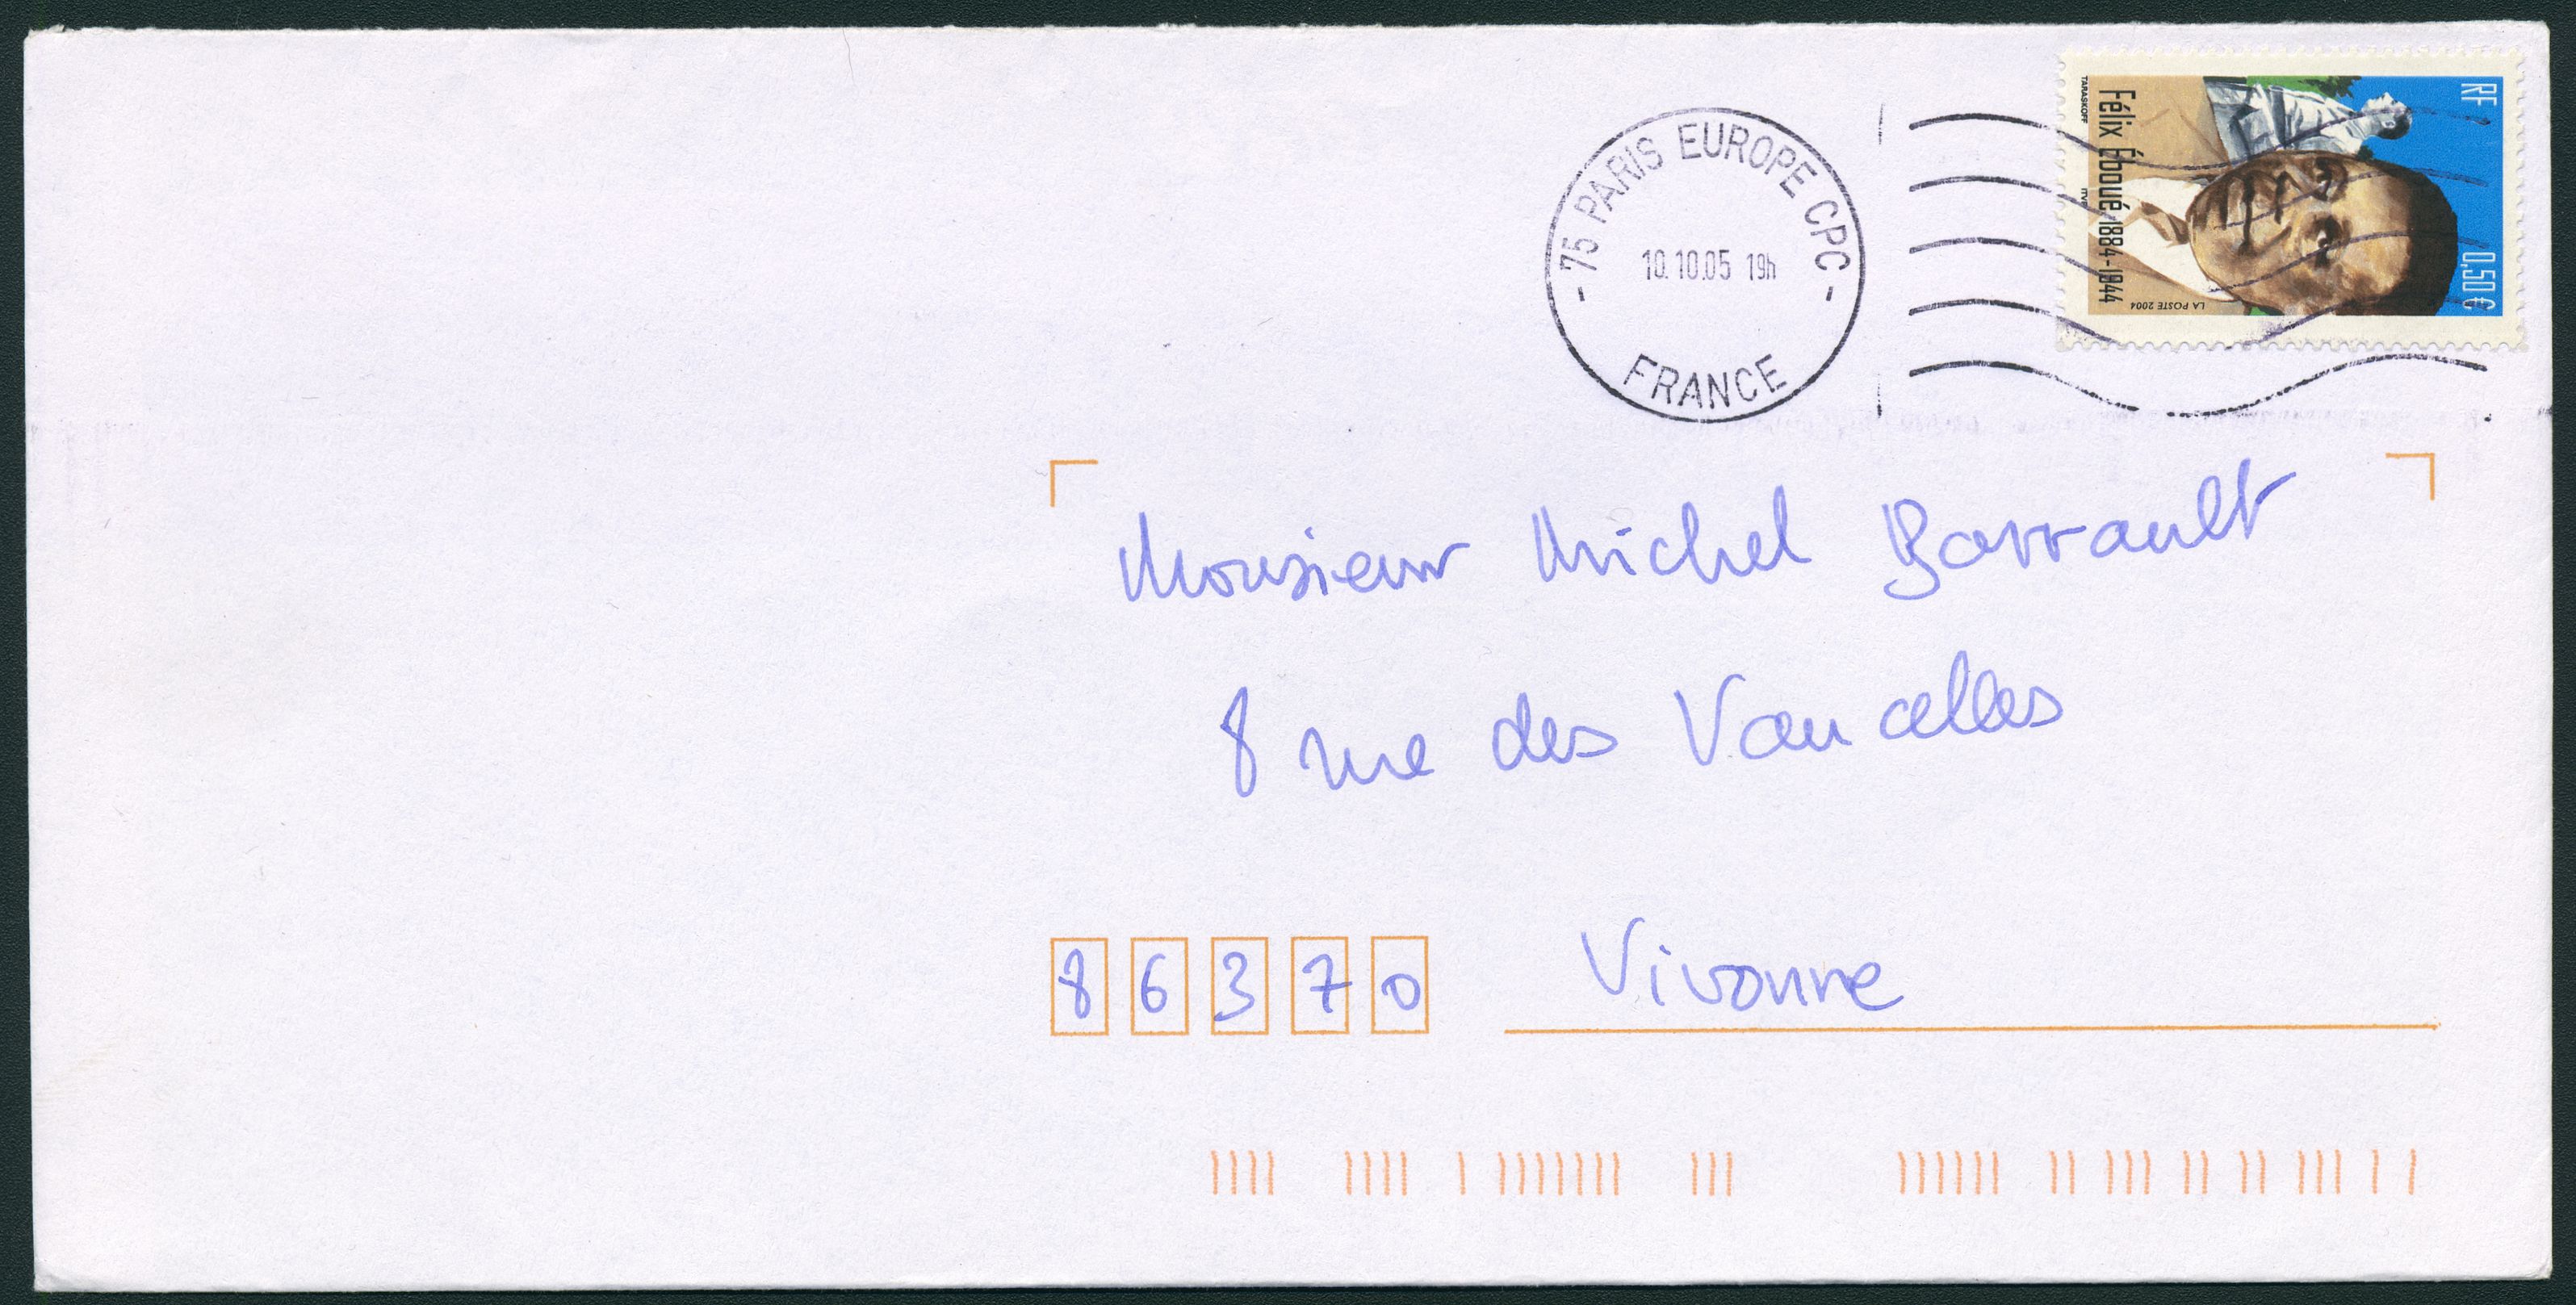 75 PARIS EUROPE CPC
10.10.05 19h
FRANCE
RF 0,50 €
Félix Éboué 1884-1944
TARASKOFF
ITVF
LA POSTE 2004
Monsieur Michel Barrault
8 rue des Vaucelles
86370 Vivonne